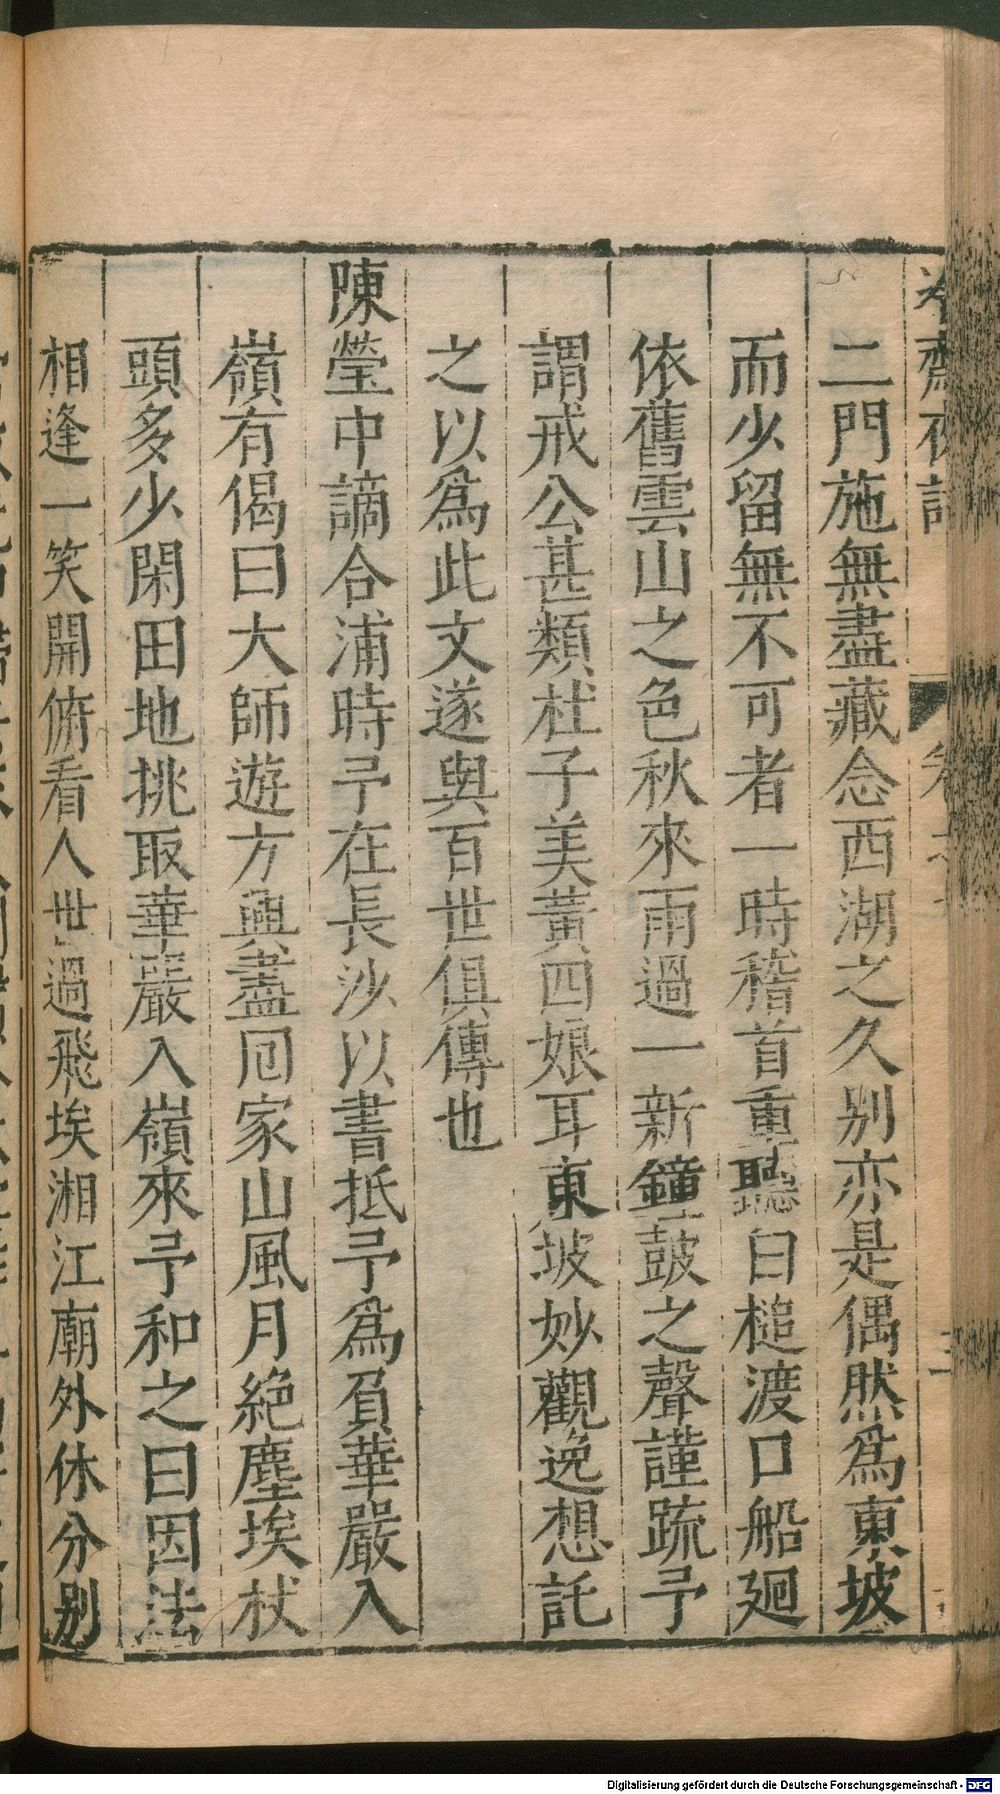 冷齋夜話 卷
二門施無盡藏念西湖之久別亦是偶然爲東坡
而少留無不可者一時稽首重聽白槌渡口船廻
依舊雲山之色秋來雨過一新鐘鼓之聲謹疏予
謂戒公甚類杜子美黃四娘耳東坡妙觀逸想託
之以爲此文遂與百世俱傳也
陳瑩中謫合浦時予在長沙以書抵予爲負華嚴入
嶺有偈曰大師遊方興盡囘家山風月絶塵埃杖
頭多少閑田地挑取華嚴入嶺來予和之曰因法
相逢一笑開俯看人世過飛埃湘江廟外休分別
Digitalisierung gefördert durch die Deutsche Forschungsgemeinschaft - DFG